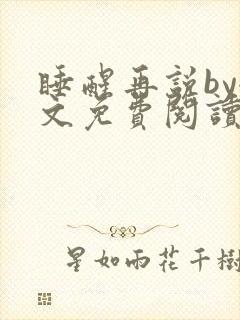 睡醒再説by
文免費閱讀
星如雨花千樹